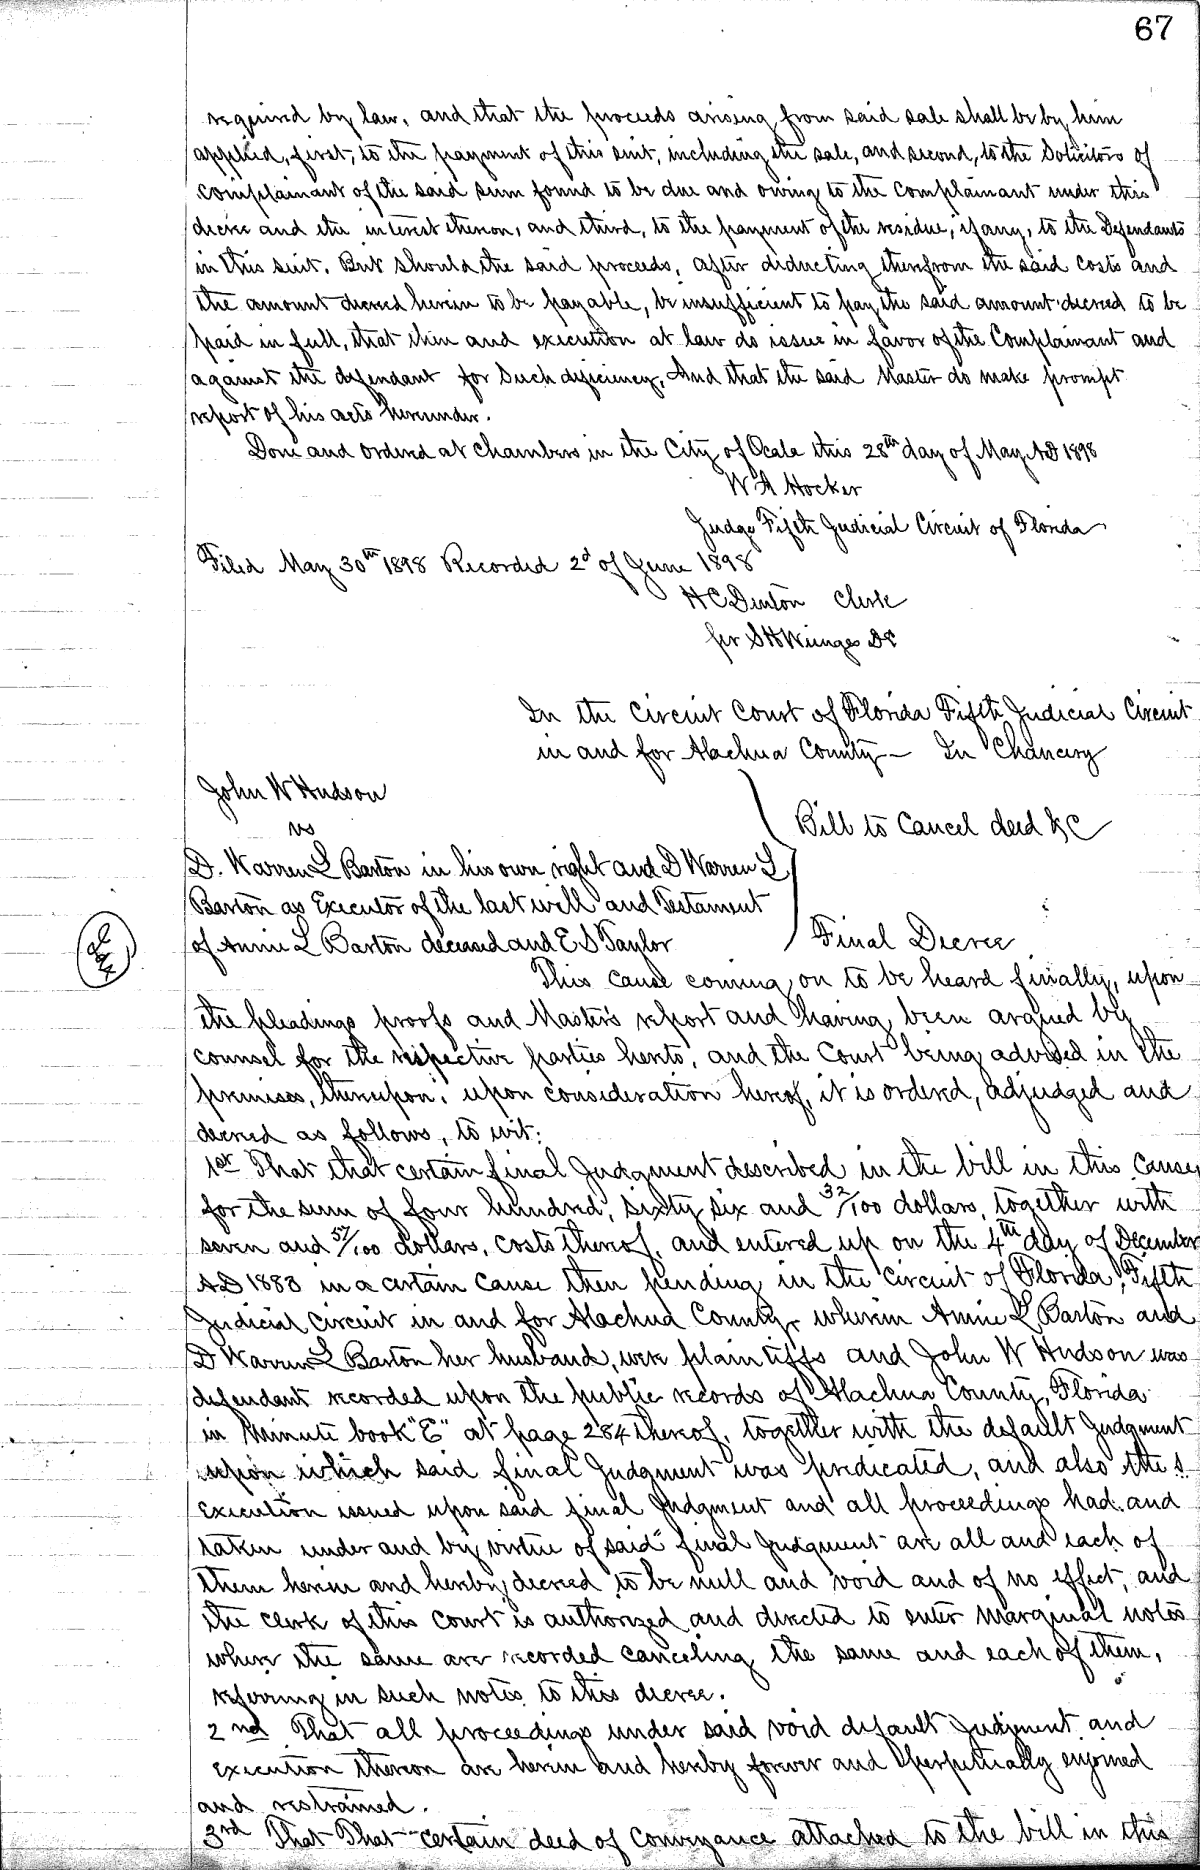 67
required by law, and that the proceeds arising from said sale shall be by him
applied, first, to the payment of this suit, including the sale, and second, to the Solicitors of
Complainant of the said sum found to be due and owing to the Complainant under this
decree and the interest thereon, and third, to the payment of the residue, if any, to the Defendants
in this suit. But should the said proceeds, after deducting therefrom the said costs and
the amount decreed herein to be payable, be insufficient to pay the said amount decreed to be
paid in full, that then and execution at law do issue in favor of the Complainant and
against the defendant for such deficiency, And that the said Master do make prompt
report of his acts hereunder.
Done and ordered at Chambers in the City of Ocala this 28th day of May AD 1898
W A Hocker
Judge Fifth Judicial Circuit of Florida
Filed May 30th 1898 Recorded 2d of June 1898
H C Denton Clerk
per S H Wienges DC
In the Circuit Court of Florida Fifth Judicial Circuit
in and for Alachua County - In Chancery
John W Hudson
vs
Bill to Cancel deed &C
D. Warren L Barton in his own right and D Warren L
Barton as Executor of the last will and Testament
of Annie L Barton deceased and E S Taylor
Final Decree
This cause coming on to be heard finally, upon
the pleadings proofs and Master's report and having been argued by
counsel for the respective parties hereto, and the Court being advised in the
premises, thereupon, upon consideration hereof, it is ordered, adjudged and
decreed as follows, to wit:
1st That that certain final Judgment described in the bill in this cause,
for the sum of four hundred, sixty six and 32/100 dollars, together with
seven and 57/100 dollars, costs thereof, and entered up on the 4th day of December
AD 1883 in a certain cause then pending in the Circuit of Florida, Fifth
Judicial Circuit in and for Alachua County, wherein Annie L Barton and
D Warren L Barton her husband, were plaintiffs and John W Hudson was
defendant recorded upon the public records of Alachua County, Florida
in Minute book "E" at page 284 thereof, together with the default Judgment
upon which said final Judgment was predicated, and also the
execution issued upon said final Judgment and all proceedings had and
taken under and by virtue of said final Judgment are all and each of
them herein and hereby decreed to be null and void and of no effect, and
the clerk of this Court is authorized and directed to enter marginal notes
where the same are recorded canceling the same and each of them,
referring in such notes to this decree.
2nd That all proceedings under said void default Judgment and
execution thereon are herein and hereby forever and perpetually enjoined
and restrained.
3rd That That certain deed of conveyance attached to the bill in this